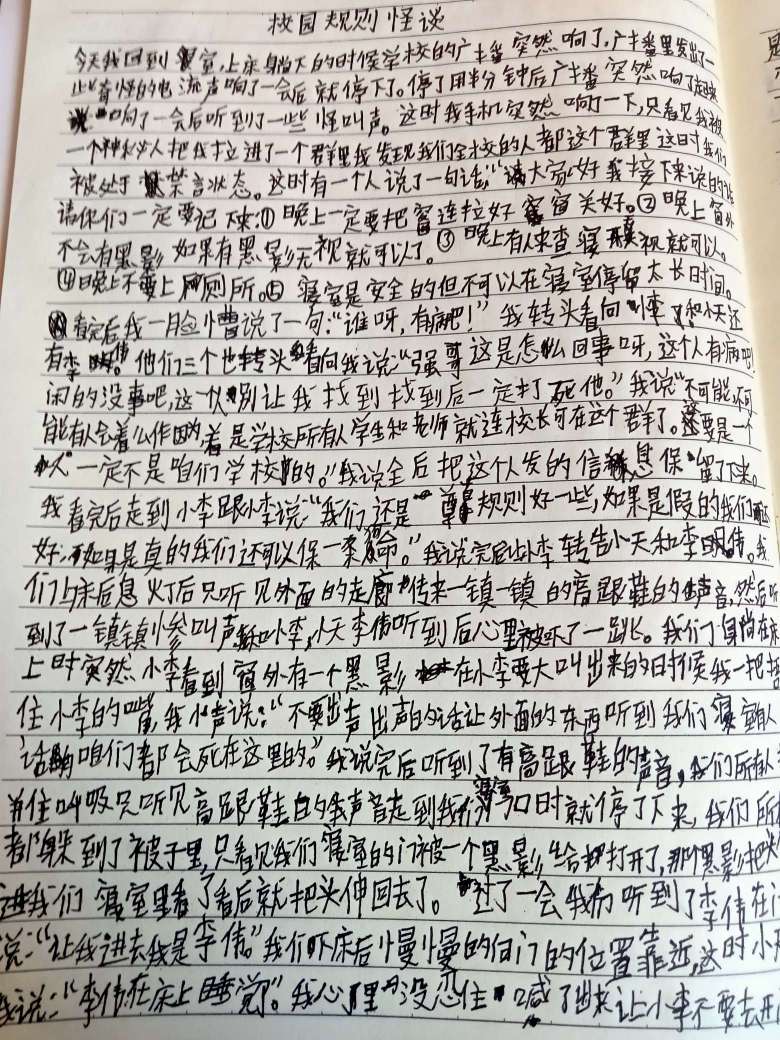 校园规则怪谈
今天我回到寝室,上床躺下的时候学校的广播突然响了,广播里发出了一
些奇怪的电流声响了一会后就停下了。停了用半分钟后广播突然响了起来
响了一会后听到了一些怪叫声。这时我手机突然响了一下,只看见我被
一个神秘人把我拉进了一个群里我发现我们全校的人都这个群里这时我们
被处于禁言状态。这时有一个人说了一句话:“请大家好我接下来说的话
请你们一定要记下来:①晚上一定要把窗连拉好窗窗关好。②晚上窗外
不会有黑影如果有黑影无视就可以了。③晚上有人来查寝无视就可以。
④晚上不要上厕所。⑤寝室是安全的但不可以在寝室停留太长时间。
看完后我一脸懵说了一句:“谁呀,有病吧!”我转头看向小李和小天还
有李伟。他们三个也转头看向我说:“强哥这是怎么回事呀,这个人有病吧
闲的没事吧,这一次别让我找到找到后一定打死他。”我说“不可能还可
能有人会着么作因为着是学校所有人学生和老师就连校长可在这个群了。还要是一个
人一定不是咱们学校的。”我说全后把这个人发的信息保留了下来。
我看完后走到小李跟小李说:“我们还是尊规则好一些,如果是假的我们
好,如果是真的我们还可以保一条命。”我说完后让小李转告小天和李伟。我
们上床后息火丁后只听见外面的走廊传来一镇一镇的高跟鞋的声音,然后听
到了一镇镇惨叫声和小李,小天李伟听到后心里被吓了一跳。我们身尚在床
上时突然小李看到窗外有一个黑影在小李要大叫出来的时候我一把捂
住小李的嘴,我小声说:“不要出声出声的话让外面的东西听到我们寝室有人
话的咱们都会死在这里的。”我说完后听到了有高跟鞋的声音,我们所有人
并住呼吸只听见高跟鞋的声音走到我们寝室门口时就停了下来,我们所有
都躲到了被子里,只看见我们寝室的门被一个黑影给打开了,那个黑影把头
进我们寝室里看了看后就把头伸回去了。过了一会我们听到了李伟在门
说:“让我进去我是李伟。”我们下床后慢慢的向门的位置靠近,这时小天
我说:“李伟在床上睡觉”。我心里没忍住喊了出来让小李不要去开